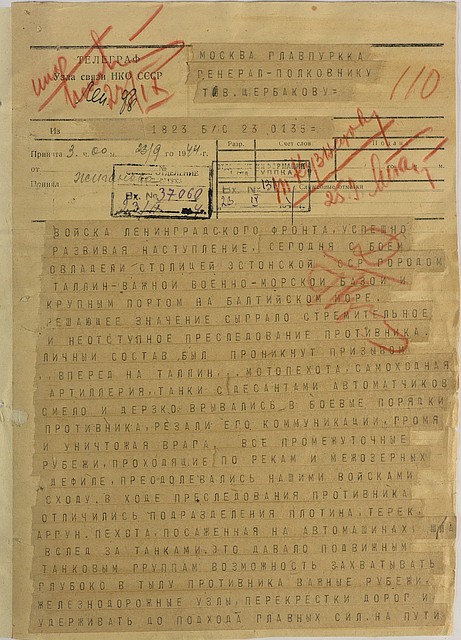 МОСКВА ГЛАВПУРККА
ТЕЛЕГРАФ
ГЕНЕРАЛ-ПОЛКОВНИКУ
Узла связи НКО СССР
ТОВ.ЩЕРБАКОВУ=
110
Из 1823 Б/О 23 0135=
Разр. Счет слов
Принята 3 ч. 00 м. 23/9 го 1944 г.
от
Принял
Вх. № 37060
Вх. №
Служебные отметки
ВОЙСКА ЛЕНИНГРАДСКОГО ФРОНТА, УСПЕШНО
РАЗВИВАЯ НАСТУПЛЕНИЕ, СЕГОДНЯ С БОЕМ
ОВЛАДЕЛИ СТОЛИЦЕЙ ЭСТОНСКОЙ ССР ГОРОДОМ
ТАЛЛИН-ВАЖНОЙ ВОЕННО-МОРСКОЙ БАЗОЙ И
КРУПНЫМ ПОРТОМ НА БАЛТИЙСКОМ МОРЕ.
РЕШАЮЩЕЕ ЗНАЧЕНИЕ СЫГРАЛО СТРЕМИТЕЛЬНОЕ
И НЕОТСТУПНОЕ ПРЕСЛЕДОВАНИЕ ПРОТИВНИКА.
ЛИЧНЫЙ СОСТАВ БЫЛ ПРОНИКНУТ ПРИЗЫВОМ
,,ВПЕРЕД НА ТАЛЛИН,,.МОТОПЕХОТА,САМОХОДНАЯ
АРТИЛЛЕРИЯ,ТАНКИ С ДЕСАНТАМИ АВТОМАТЧИКОВ
СМЕЛО И ДЕРЗКО ВРУВАЛИСЬ В БОЕВЫЕ ПОРЯДКИ
ПРОТИВНИКА,РЕЗАЛИ ЕГО КОММУНИКАЦИИ,ГРОМЯ
И УНИЧТОЖАЯ ВРАГА. ВСЕ ПРОМЕЖУТОЧНЫЕ
РУБЕЖИ,ПРОХОДЯЩИЕ ПО РЕКАМ И МЕЖОЗЕРНЫХ
ДЕФИЛЕ,ПРЕОДОЛЕВАЛИСЬ НАШИМИ ВОЙСКАМИ
СХОДУ.В ХОДЕ ПРЕСЛЕДОВАНИЯ ПРОТИВНИКА
ОТЛИЧИЛИСЬ ПОДРАЗДЕЛЕНИЯ ПЛОТИНА,ТЕРЕК,
АРГУН.ПЕХОТА,ПОСАЖЕННАЯ НА АВТОМАШИНАХ, ШЛА
ВСЛЕД ЗА ТАНКАМИ.ЭТО ДАВАЛО ПОДВИЖНЫМ
ТАНКОВЫМ ГРУППАМ ВОЗМОЖНОСТЬ ЗАХВАТЫВАТЬ
ГЛУБОКО В ТЫЛУ ПРОТИВНИКА ВАЖНЫЕ РУБЕЖИ,
ЖЕЛЕЗНОДОРОЖНЫЕ УЗЛЫ,ПЕРЕКРЕСТКИ ДОРОГ И
УДЕРЖИВАТЬ ДО ПОДХОДА ГЛАВНЫХ СИЛ.НА ПУТИ